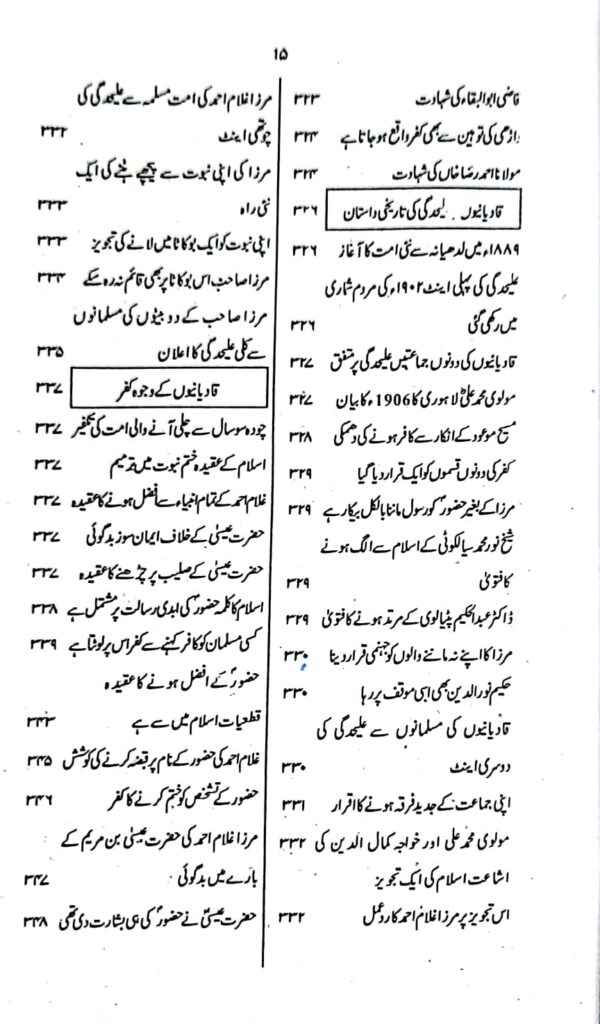 ۱۵
قاضی ابوالبقاء کی شہادت ۳۲۳
داڑھی کی توہین سے بھی کفر واقع ہو جاتا ہے ۳۲۴
مولانا احمد رضا خاں کی شہادت ۳۲۴
قادیانیوں علیحدگی کی تاریخی داستان ۳۲۶
۱۸۸۹ء میں لدھیانہ سے نئی امت کا آغاز ۳۲۶
علیحدگی کی پہلی اینٹ ۱۹۰۲ء کی مردم شماری
میں رکھی گئی ۳۲۶
قادیانیوں کی دونوں جماعتیں علیحدگی پر متفق ۳۲۷
مولوی محمد علی لاہوری کا 1906ء کا بیان ۳۲۷
مسیح موعود کے انکار سے کافر ہونے کی دھمکی ۳۲۸
کفر کی دونوں قسموں کو ایک قرار دیا گیا ۳۲۹
مرزا کے بغیر حضورؐ کو رسول ماننا بالکل بیکار ہے ۳۲۹
شیخ نور محمد سیالکوٹی کے اسلام سے الگ ہونے
کا فتویٰ ۳۲۹
ڈاکٹر عبدالحکیم پٹیالوی کے مرتد ہونے کا فتویٰ ۳۲۹
مرزا کا اپنے نہ ماننے والوں کو جہنمی قرار دینا ۳۳۰
حکیم نور الدین بھی اسی موقف پر رہا ۳۳۰
قادیانیوں کی مسلمانوں سے علیحدگی کی
دوسری اینٹ ۳۳۰
اپنی جماعت کے جدید فرقہ ہونے کا اقرار ۳۳۱
مولوی محمد علی اور خواجہ کمال الدین کی ۳۳۲
اشاعت اسلام کی ایک تجویز
اس تجویز پر مرزا غلام احمد کا ردِ عمل ۳۳۲
مرزا غلام احمد کی امت مسلمہ سے علیحدگی کی
چوتھی اینٹ ۳۳۲
مرزا کی اپنی نبوت سے پیچھے ہٹنے کی ایک
نئی راہ ۳۳۳
اپنی نبوت کو ایک بوکاٹا میں لانے کی تجویز ۳۳۳
مرزا صاحب اس بوکاٹا پر بھی قائم نہ رہ سکے ۳۳۴
مرزا صاحب کے دو بیٹوں کی مسلمانوں
سے کلی علیحدگی کا اعلان ۳۳۵
قادیانیوں کے وجوہ کفر ۳۳۷
چودہ سو سال سے چلی آنے والی امت کی تکفیر ۳۳۷
اسلام کے عقیدہ ختم نبوت میں ترمیم ۳۳۷
غلام احمد کے تمام انبیاء سے افضل ہونے کا عقیدہ ۳۳۷
حضرت عیسیٰ کے خلاف ایمان سوز بدگوئی ۳۳۷
حضرت عیسیٰ کے صلیب پر چڑھنے کا عقیدہ ۳۳۷
اسلام کا کلمہ حضورؐ کی ابدی رسالت پر مشتمل ہے ۳۳۸
کسی مسلمان کو کافر کہنے سے کفر اس پر لوٹتا ہے ۳۳۹
حضورؐ کے افضل ہونے کا عقیدہ
قطعیات اسلام میں سے ہے ۳۴۳
غلام احمد کی حضور کے نام پر قبضہ کرنے کی کوشش ۳۴۵
حضور کے تشخص کو ختم کرنے کا کفر ۳۴۶
مرزا غلام احمد کی حضرت عیسیٰ بن مریم کے
بارے میں بدگوئی ۳۴۷
حضرت عیسیٰؑ نے حضورؐ کی ہی بشارت دی تھی ۳۴۸